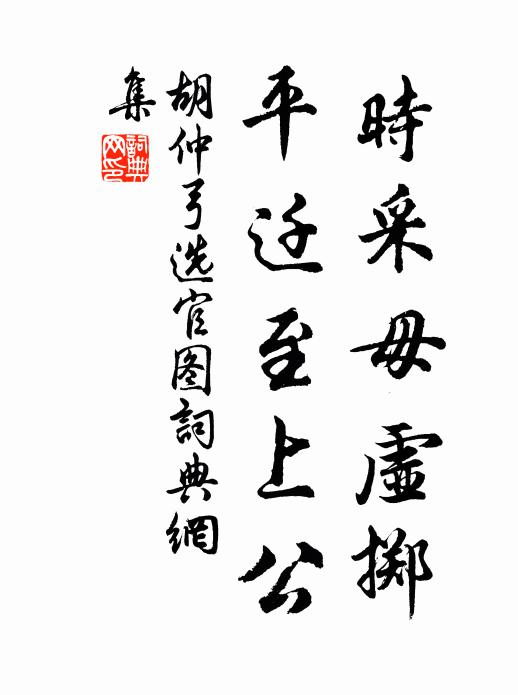 時采毋虛擲
平迁至上公
胡仲弓选官图詞典網
集
詞典網印